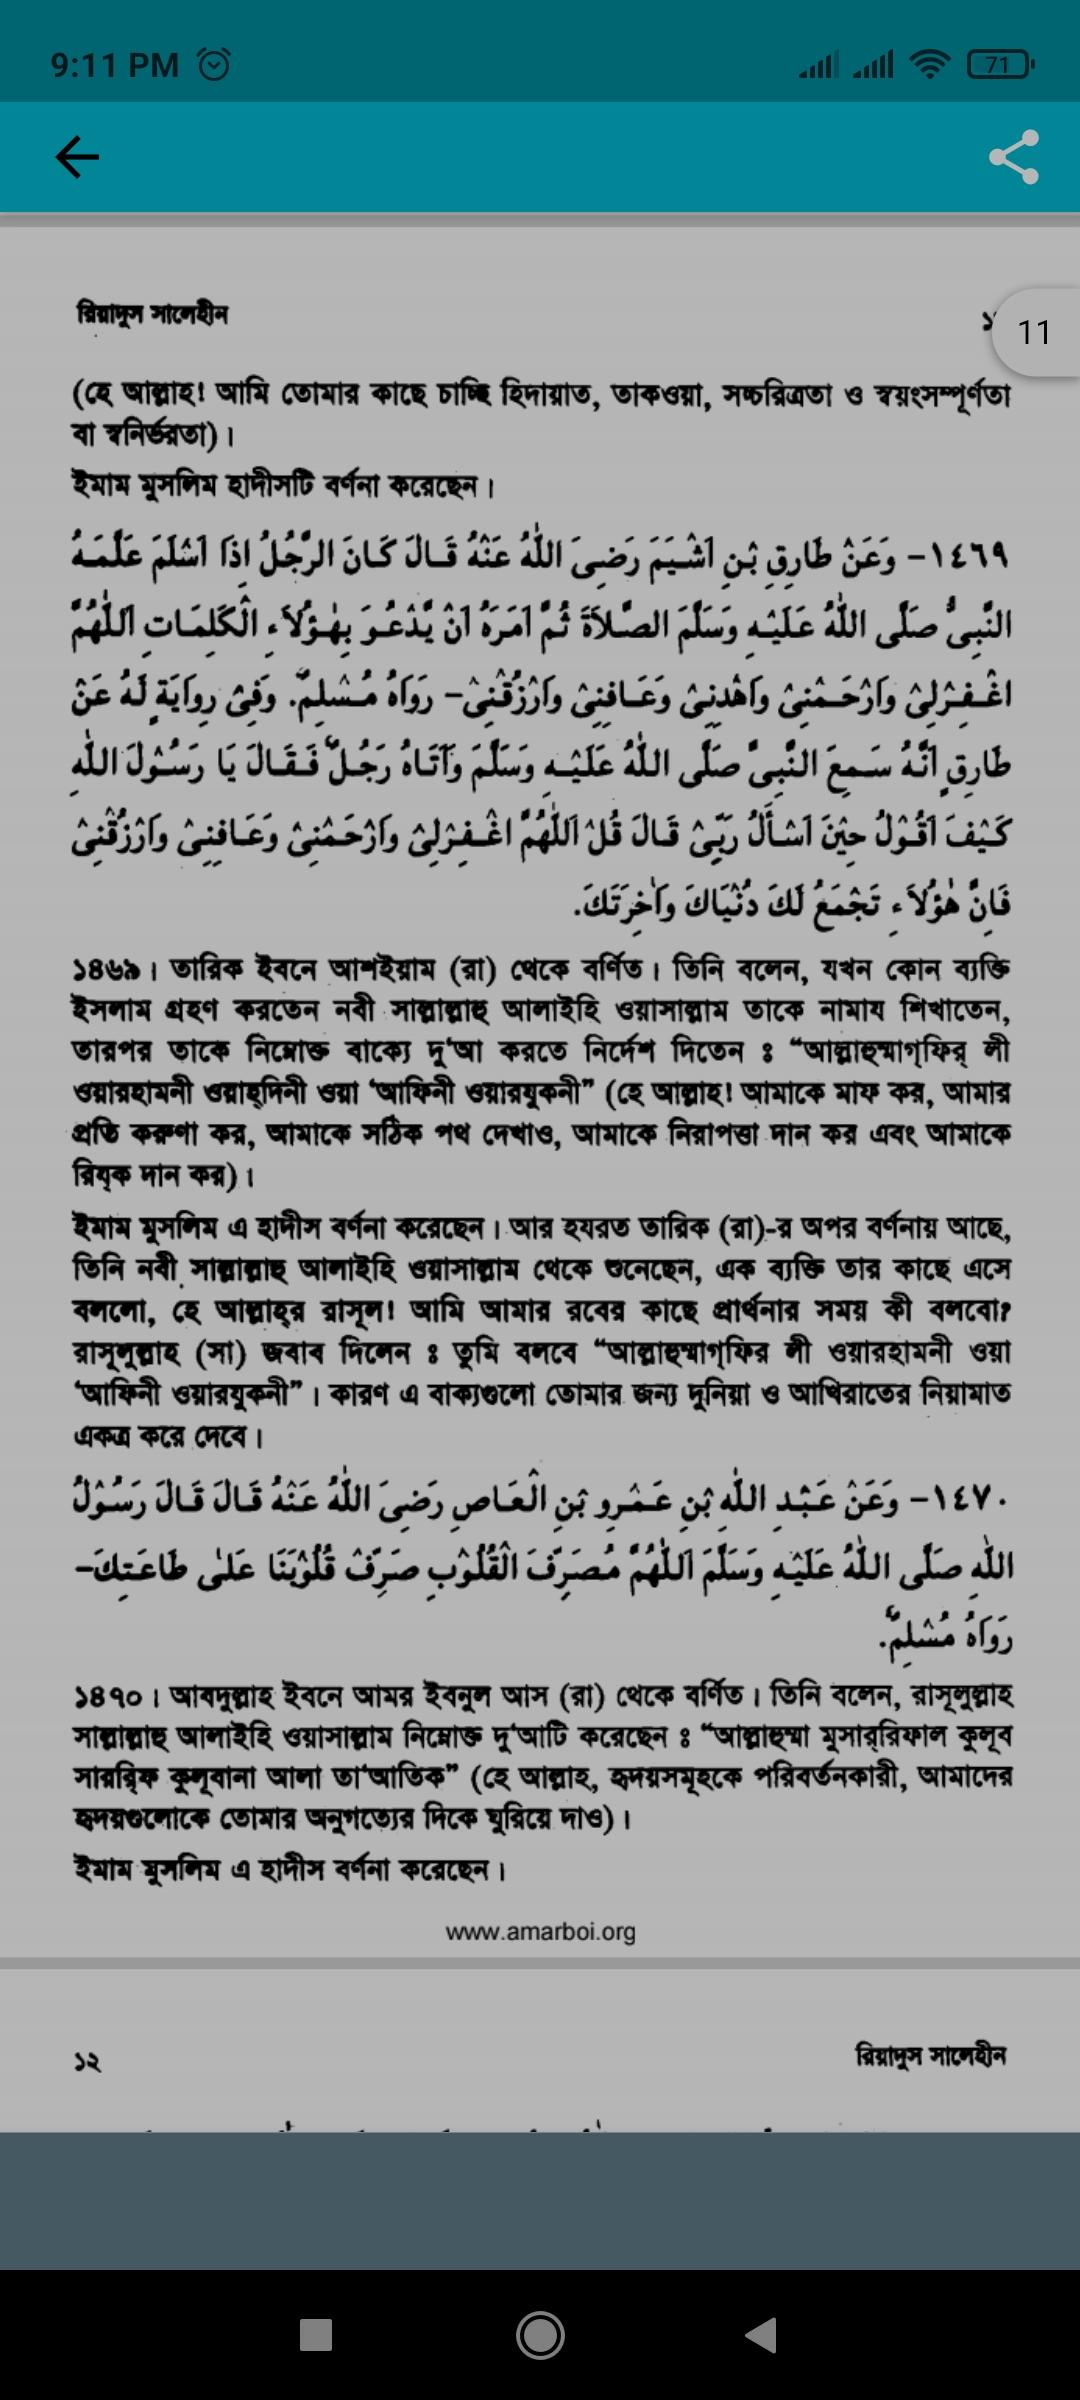 9:11 PM
71
রিয়াদুস সালেহীন
11
(হে আল্লাহ! আমি তোমার কাছে চাচ্ছি হিদায়াত, তাকওয়া, সচ্চরিত্রতা ও স্বয়ংসম্পূর্ণতা
বা স্বনির্ভরতা)।
ইমাম মুসলিম হাদীসটি বর্ণনা করেছেন।
١٤٦٩- وَعَنْ طَارِقِ بْنِ اَشْيَمَ رَضِىَ اللّٰهُ عَنْهُ قَالَ كَانَ الرَّجُلُ اِذَا اَسْلَمَ عَلَّمَهُ
النَّبِىُّ صَلَّى اللّٰهُ عَلَيْهِ وَسَلَّمَ الصَّلاَةَ ثُمَّ اَمَرَهُ اَنْ يَّدْعُوَ بِهٰؤُلاَءِ الْكَلِمَاتِ اَللّٰهُمَّ
اغْفِرْلِىْ وَارْحَمْنِىْ وَاهْدِنِىْ وَعَافِنِىْ وَارْزُقْنِىْ- رَوَاهُ مُسْلِمٌ. وَفِىْ رِوَايَةٍ لَهُ عَنْ
طَارِقٍ اَنَّهُ سَمِعَ النَّبِىَّ صَلَّى اللّٰهُ عَلَيْهِ وَسَلَّمَ وَاَتَاهُ رَجُلٌ فَقَالَ يَا رَسُوْلَ اللّٰهِ
كَيْفَ اَقُوْلُ حِيْنَ اَسْأَلُ رَبِّىْ قَالَ قُلْ اَللّٰهُمَّ اغْفِرْلِىْ وَارْحَمْنِىْ وَعَافِنِىْ وَارْزُقْنِىْ
فَاِنَّ هٰؤُلاَءِ تَجْمَعُ لَكَ دُنْيَاكَ وَاٰخِرَتَكَ.
১৪৬৯। তারিক ইবনে আশইয়াম (রা) থেকে বর্ণিত। তিনি বলেন, যখন কোন ব্যক্তি
ইসলাম গ্রহণ করতেন নবী সাল্লাল্লাহু আলাইহি ওয়াসাল্লাম তাকে নামায শিখাতেন,
তারপর তাকে নিম্নোক্ত বাক্যে দু‘আ করতে নির্দেশ দিতেন ঃ “আল্লাহুম্মাগ্‌ফির্ লী
ওয়ারহামনী ওয়াহ্‌দিনী ওয়া ‘আফিনী ওয়ারযুকনী” (হে আল্লাহ! আমাকে মাফ কর, আমার
প্রতি করুণা কর, আমাকে সঠিক পথ দেখাও, আমাকে নিরাপত্তা দান কর এবং আমাকে
রিয্‌ক দান কর)।
ইমাম মুসলিম এ হাদীস বর্ণনা করেছেন। আর হযরত তারিক (রা)-র অপর বর্ণনায় আছে,
তিনি নবী সাল্লাল্লাহু আলাইহি ওয়াসাল্লাম থেকে শুনেছেন, এক ব্যক্তি তার কাছে এসে
বললো, হে আল্লাহ্‌র রাসূল! আমি আমার রবের কাছে প্রার্থনার সময় কী বলবো?
রাসূলুল্লাহ (সা) জবাব দিলেন ঃ তুমি বলবে “আল্লাহুম্মাগ্‌ফির লী ওয়ারহামনী ওয়া
‘আফিনী ওয়ারযুকনী”। কারণ এ বাক্যগুলো তোমার জন্য দুনিয়া ও আখিরাতের নিয়ামাত
একত্র করে দেবে।
١٤٧٠- وَعَنْ عَبْدِ اللّٰهِ بْنِ عَمْرِو بْنِ الْعَاصِ رَضِىَ اللّٰهُ عَنْهُ قَالَ قَالَ رَسُوْلُ
اللّٰهِ صَلَّى اللّٰهُ عَلَيْهِ وَسَلَّمَ اَللّٰهُمَّ مُصَرِّفَ الْقُلُوْبِ صَرِّفْ قُلُوْبَنَا عَلٰى طَاعَتِكَ-
رَوَاهُ مُسْلِمٌ.
১৪৭০। আবদুল্লাহ ইবনে আমর ইবনুল আস (রা) থেকে বর্ণিত। তিনি বলেন, রাসূলুল্লাহ
সাল্লাল্লাহু আলাইহি ওয়াসাল্লাম নিম্নোক্ত দু‘আটি করেছেন ঃ “আল্লাহুম্মা মুসার্‌রিফাল কুলূব
সাররি্‌ফ কুলূবানা আলা তা‘আতিক” (হে আল্লাহ, হৃদয়সমূহকে পরিবর্তনকারী, আমাদের
হৃদয়গুলোকে তোমার অনুগত্যের দিকে ঘুরিয়ে দাও)।
ইমাম মুসলিম এ হাদীস বর্ণনা করেছেন।
www.amarboi.org
১২
রিয়াদুস সালেহীন